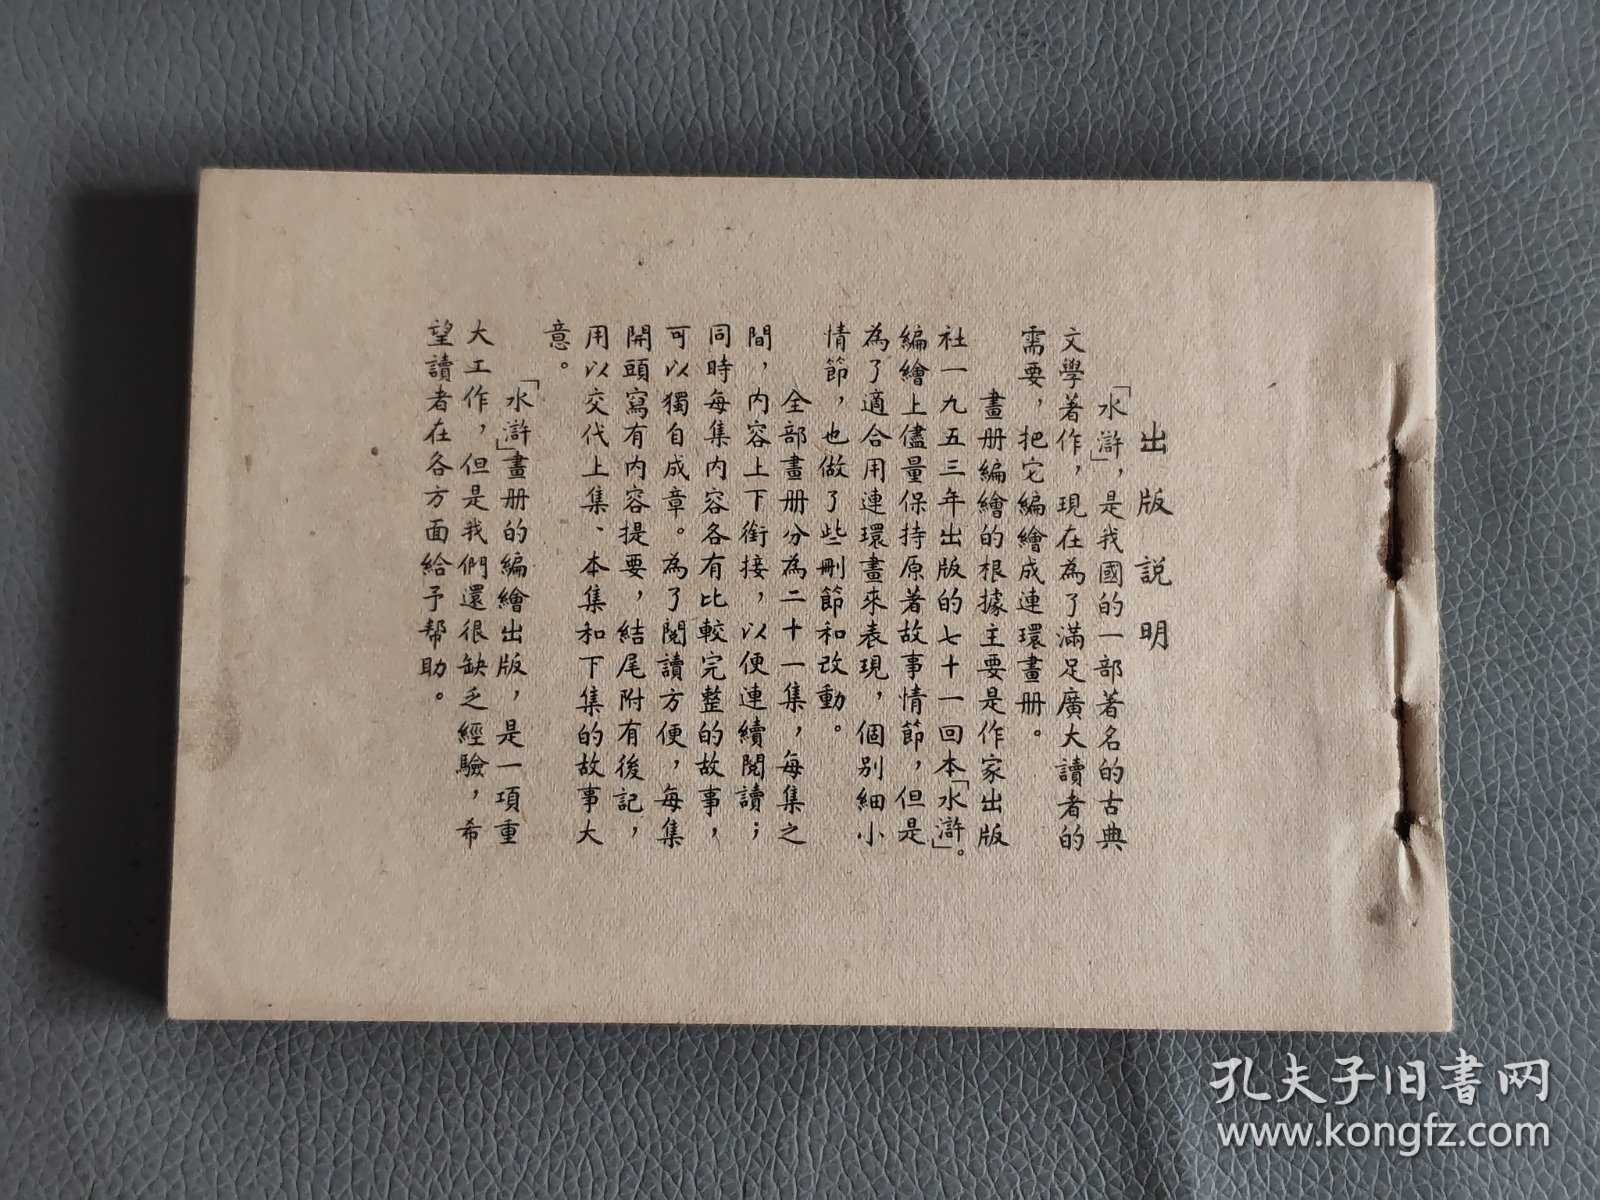 出版説明
「水滸」，是我國的一部著名的古典
文學著作，現在為了滿足廣大讀者的
需要，把它編繪成連環畫册。
畫册編繪的根據主要是作家出版
社一九五三年出版的七十一回本「水滸」。
編繪上儘量保持原著故事情節，但是
為了適合用連環畫來表現，個别細小
情節，也做了些刪節和改動。
全部畫册分為二十一集，每集之
間，内容上下銜接，以便連續閱讀；
同時每集内容各有比較完整的故事，
可以獨自成章。為了閱讀方便，每集
開頭寫有内容提要，結尾附有後記，
用以交代上集、本集和下集的故事大
意。
「水滸」畫册的編繪出版，是一項重
大工作，但是我們還很缺乏經驗，希
望讀者在各方面給予帮助。
孔夫子旧書网
www.kongfz.com